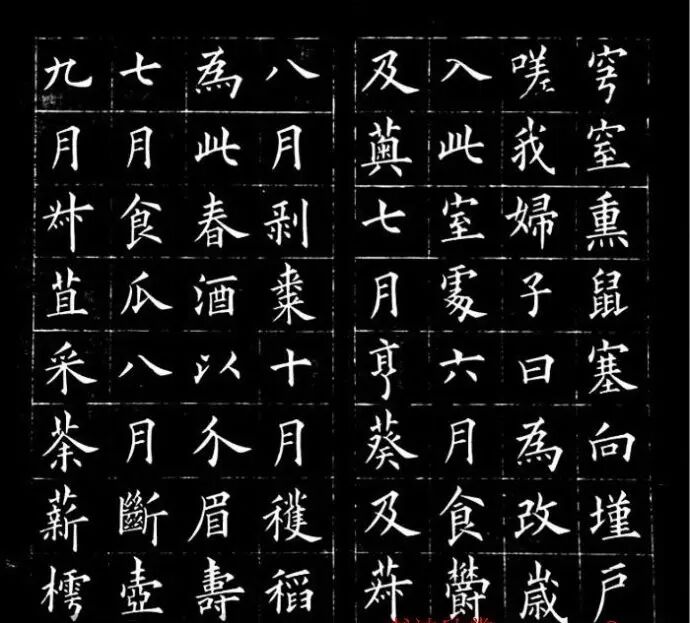 穹窒熏鼠塞向墐戶
嗟我婦子曰為改歲
入此室處六月食鬱
及薁七月亨葵及菽
八月剥棗十月穫稻
為此春酒以介眉壽
七月食瓜八月斷壺
九月叔苴采荼薪樗